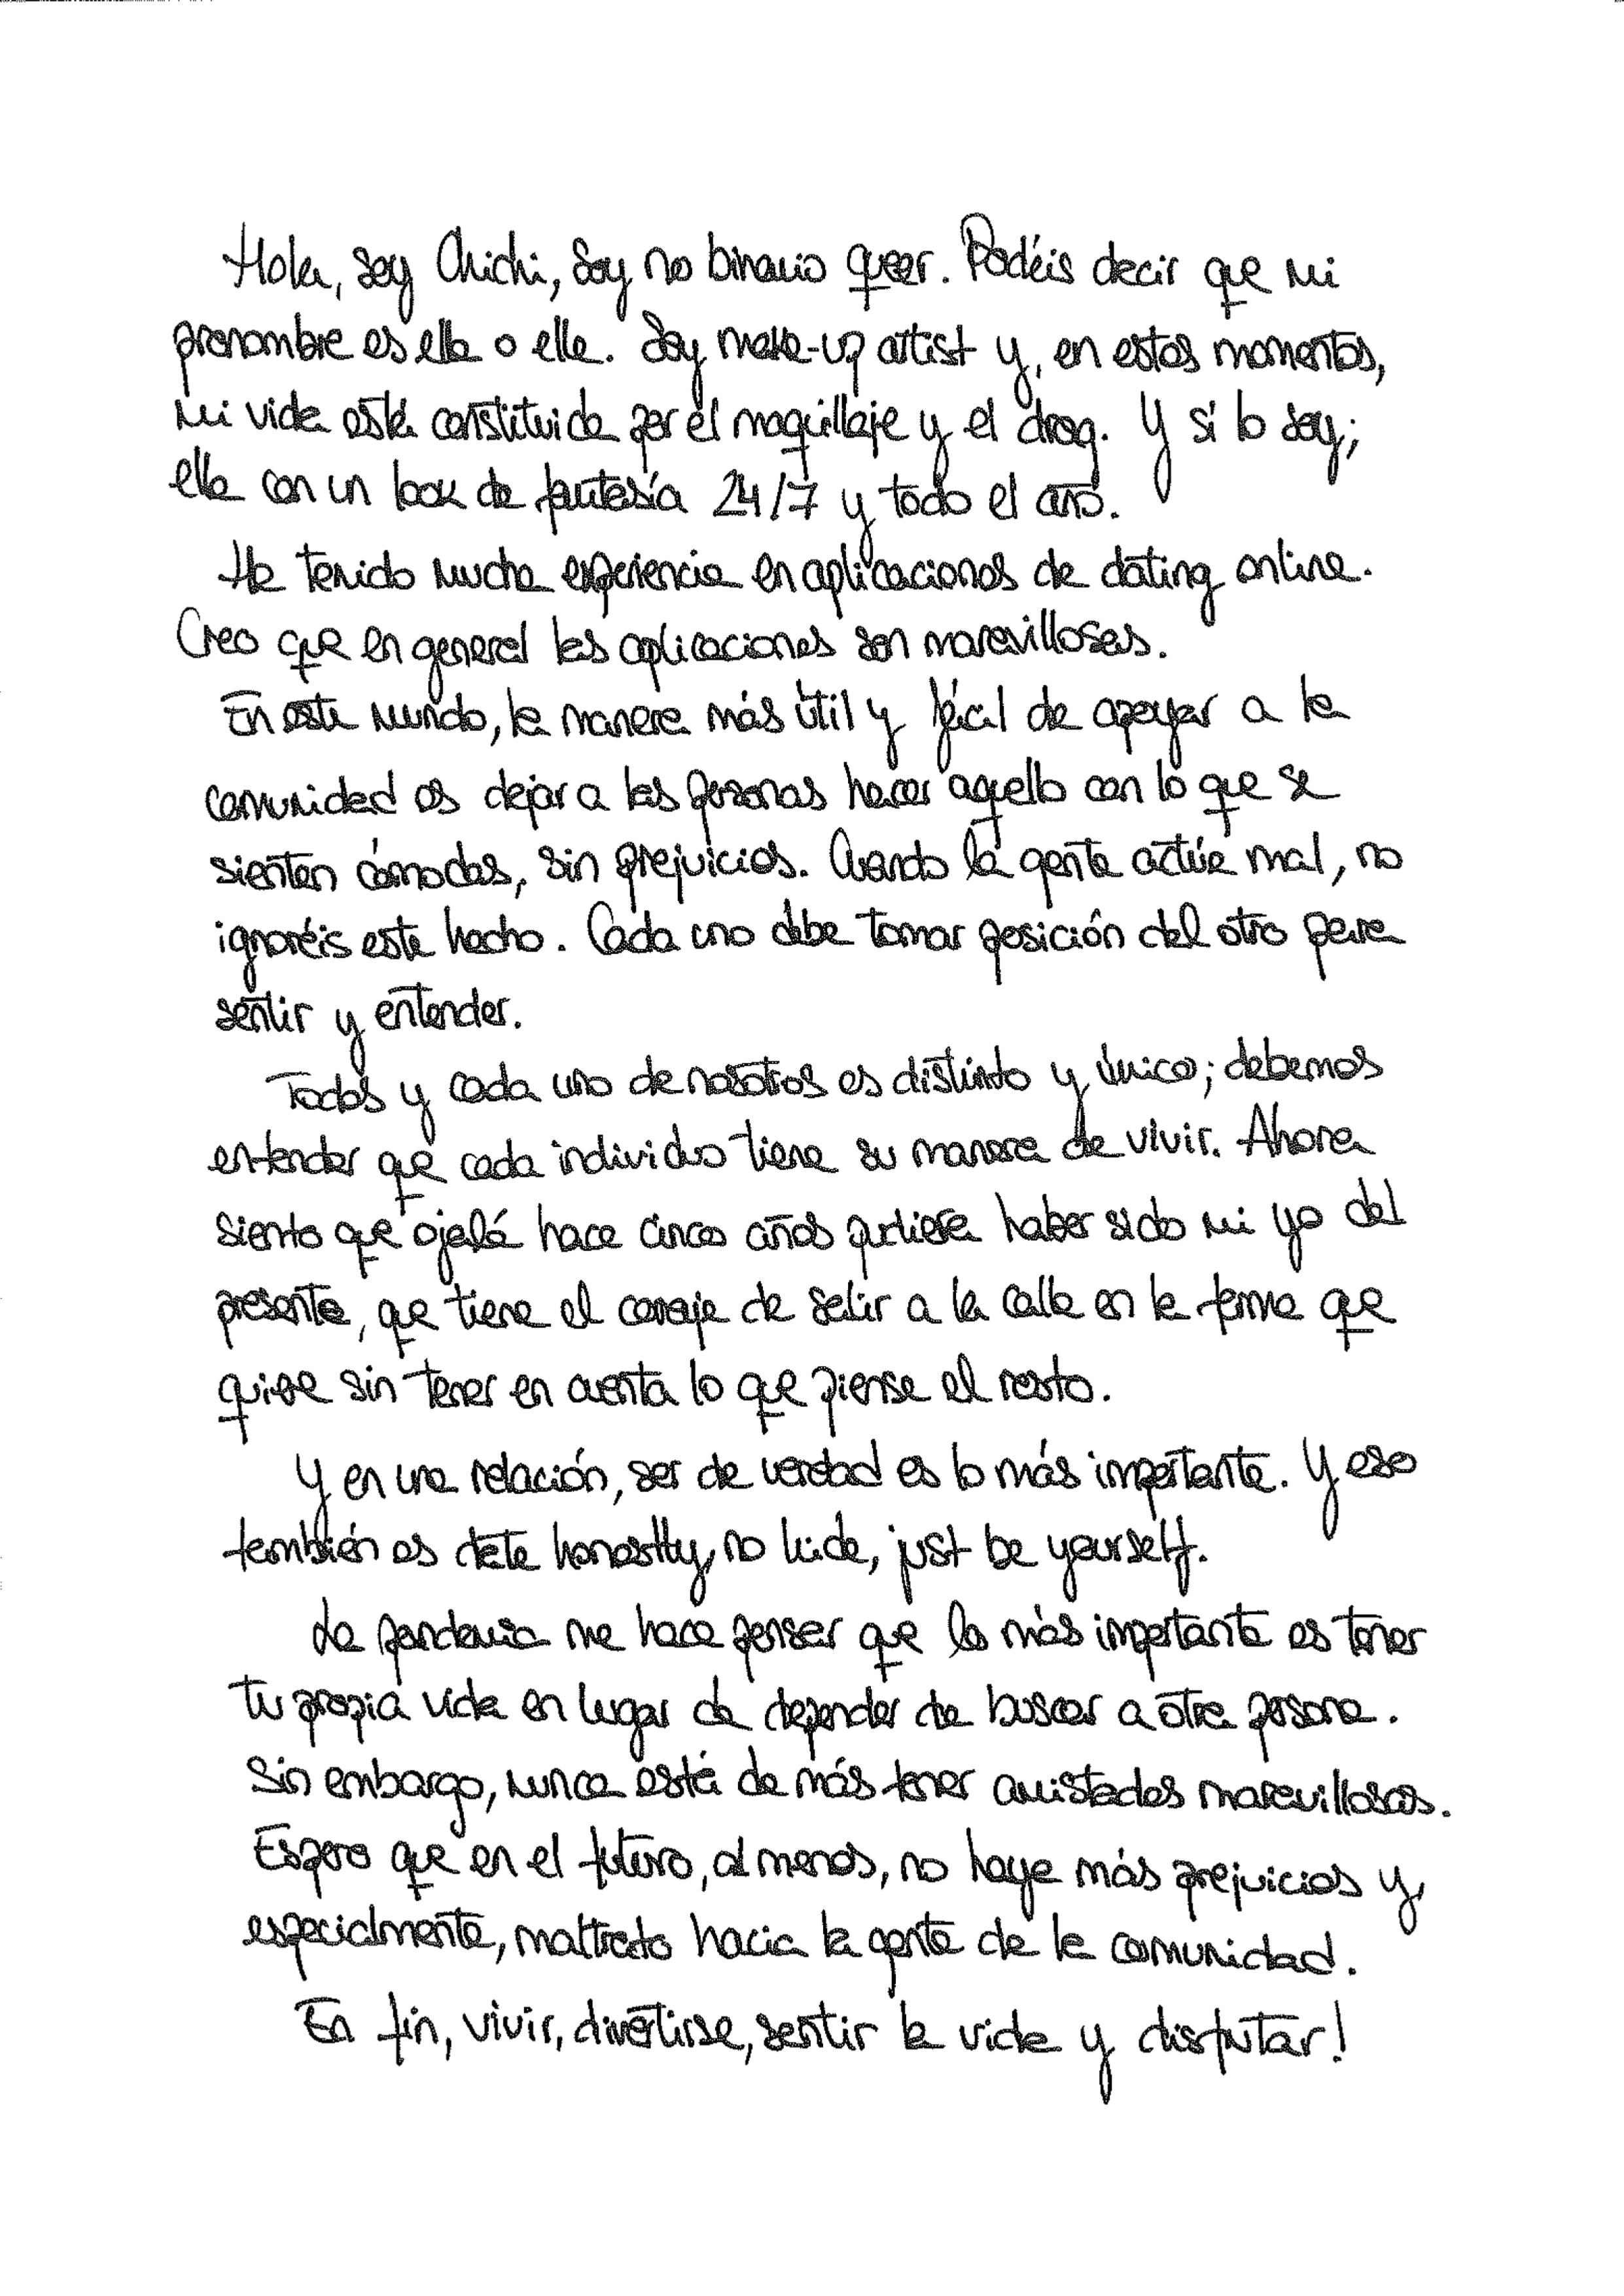 Hola, soy Chichi, soy no binario queer. Podéis decir que mi
pronombre es ella o elle. Soy make-up artist y, en estos momentos,
mi vida está constituida por el maquillaje y el drag. Y sí lo soy;
ella con un look de fantasía 24/7 y todo el año.
He tenido mucha experiencia en aplicaciones de dating online.
Creo que en general las aplicaciones son maravillosas.
En este mundo, la manera más útil y fácil de apoyar a la
comunidad es dejar a las personas hacer aquello con lo que se
sienten cómodas, sin prejuicios. Cuando la gente actúe mal, no
ignoréis este hecho. Cada uno debe tomar posición del otro para
sentir y entender.
Todos y cada uno de nosotros es distinto y único; debemos
entender que cada individuo tiene su manera de vivir. Ahora
siento que ojalá hace cinco años pudiera haber sido mi yo del
presente, que tiene el coraje de salir a la calle en la forma que
quiere sin tener en cuenta lo que piense el resto.
Y en una relación, ser de verdad es lo más importante. Y eso
también es date honestly, no hide, just be yourself.
La pandemia me hace pensar que lo más importante es tener
tu propia vida en lugar de depender de buscar a otra persona.
Sin embargo, nunca está de más tener amistades maravillosas.
Espero que en el futuro, al menos, no haya más prejuicios y,
especialmente, maltrato hacia la gente de la comunidad.
En fin, vivir, divertirse, sentir la vida y disfrutar!